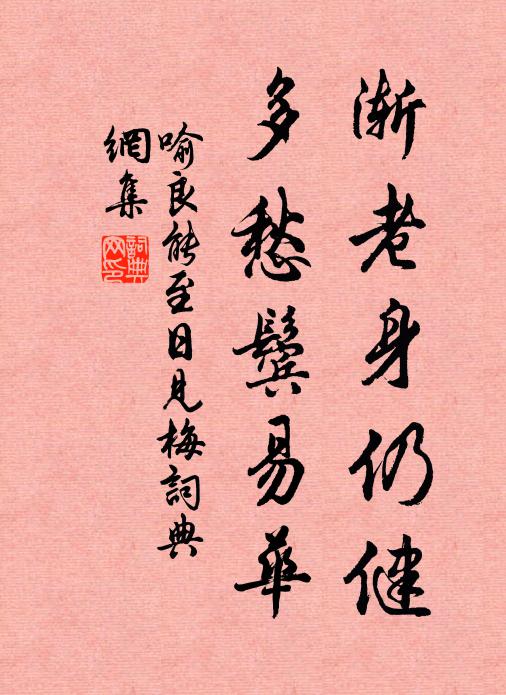 漸老身仍健
多愁鬓易華
喻良能至日見梅詞典
網集
詞典網印